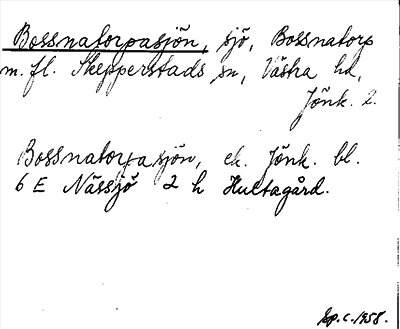 Bossnatorpasjön, sjö, Bossnatorp
m. fl. Skepperstads sn, Västra hd,
Jönk. l.
Bossnatorpasjön, ek. Jönk. bl.
6 E Nässjö 2 h Hultagård.
c. 1958.